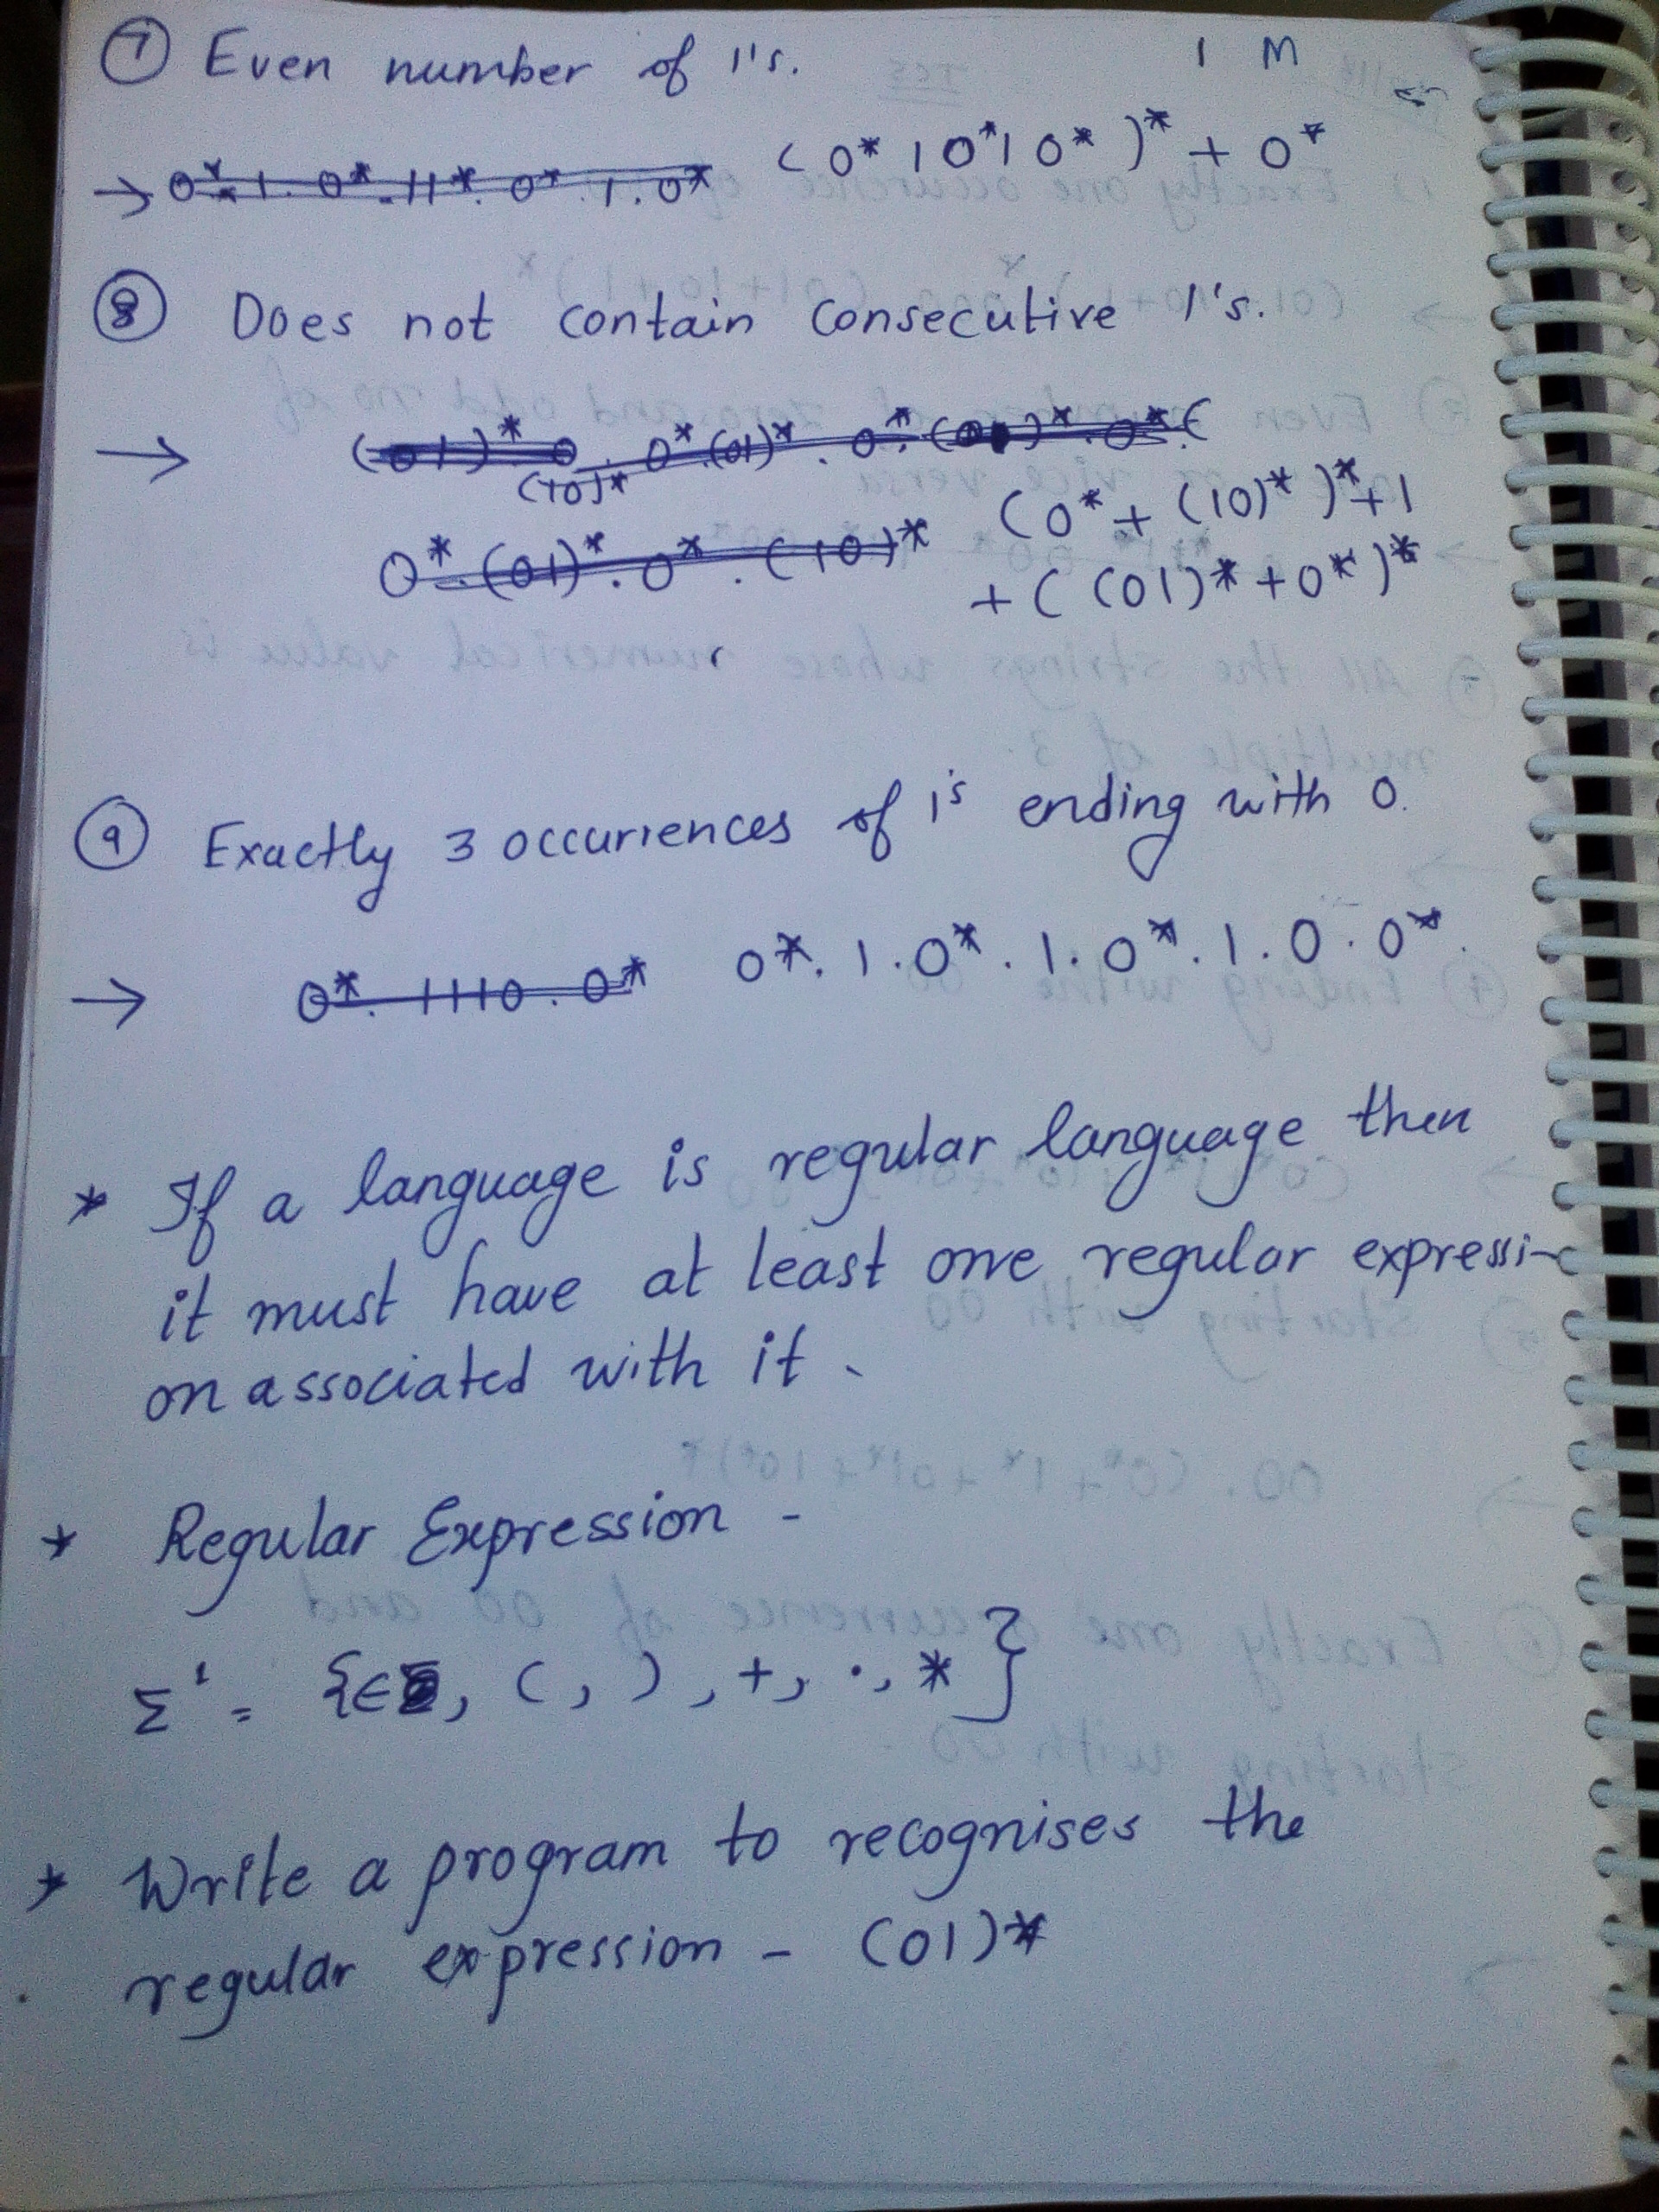 1 M
⑦ Even number of 1's.
→ 0*.1.0*.11*.0*.1.0* (0*10*10*)* + 0*
⑧ Does not contain consecutive 1's.
→ (01)*0. 0*.(01)*.0*.( )*.0*.(
(10)*
(0* + (10)*)*+1
0*.(01)*.0*.(10)*
+((01)*+0*)*
⑨ Exactly 3 occurrences of 1's ending with 0.
→ 0*.1110.0* 0*.1.0*.1.0*.1.0.0*.
* If a language is regular language then
it must have at least one regular expressi-
on associated with it.
* Regular Expression -
Σ' = {∈, (, ), +, ·, *}
* Write a program to recognises the
regular expression - (01)*